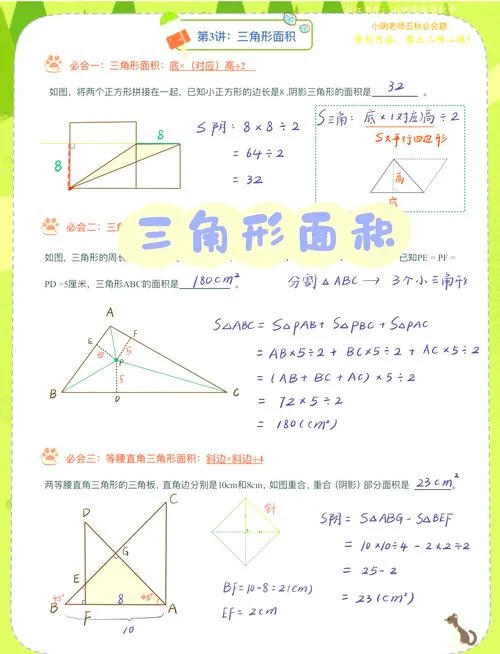 小明老师五秋必会题
第3讲：三角形面积
必会一：三角形面积：底×（对应）高÷2
如图，将两个正方形拼接在一起，已知小正方形的边长是8，阴影三角形的面积是 32 。
8
8
S阴：8×8÷2
=64÷2
=32
S三角：底×1对应高÷2
S大平行四边形
高
底
三角形面积
必会二：三角
如图，三角形的周长
已知PE = PF =
PD =5厘米，三角形ABC的面积是 180cm²
分割△ABC → 3个小三角形
A
E
F
5
5
P
5
B
D
C
S△ABC = S△PAB + S△PBC + S△PAC
= AB×5÷2 + BC×5÷2 + AC×5÷2
= (AB+BC+AC)×5÷2
= 72×5÷2
= 180(cm²)
必会三：等腰直角三角形面积：斜边×斜边÷4
两等腰直角三角形的三角板，直角边分别是10cm和8cm，如图重合，重合（阴影）部分面积是 23cm² 。
C
D
G
E
45°
8
45°
B
F
A
10
斜
BF=10-8=2(cm)
EF=2cm
S阴 = S△ABG - S△BEF
= 10×10÷4 - 2×2÷2
= 25-2
= 23(cm²)